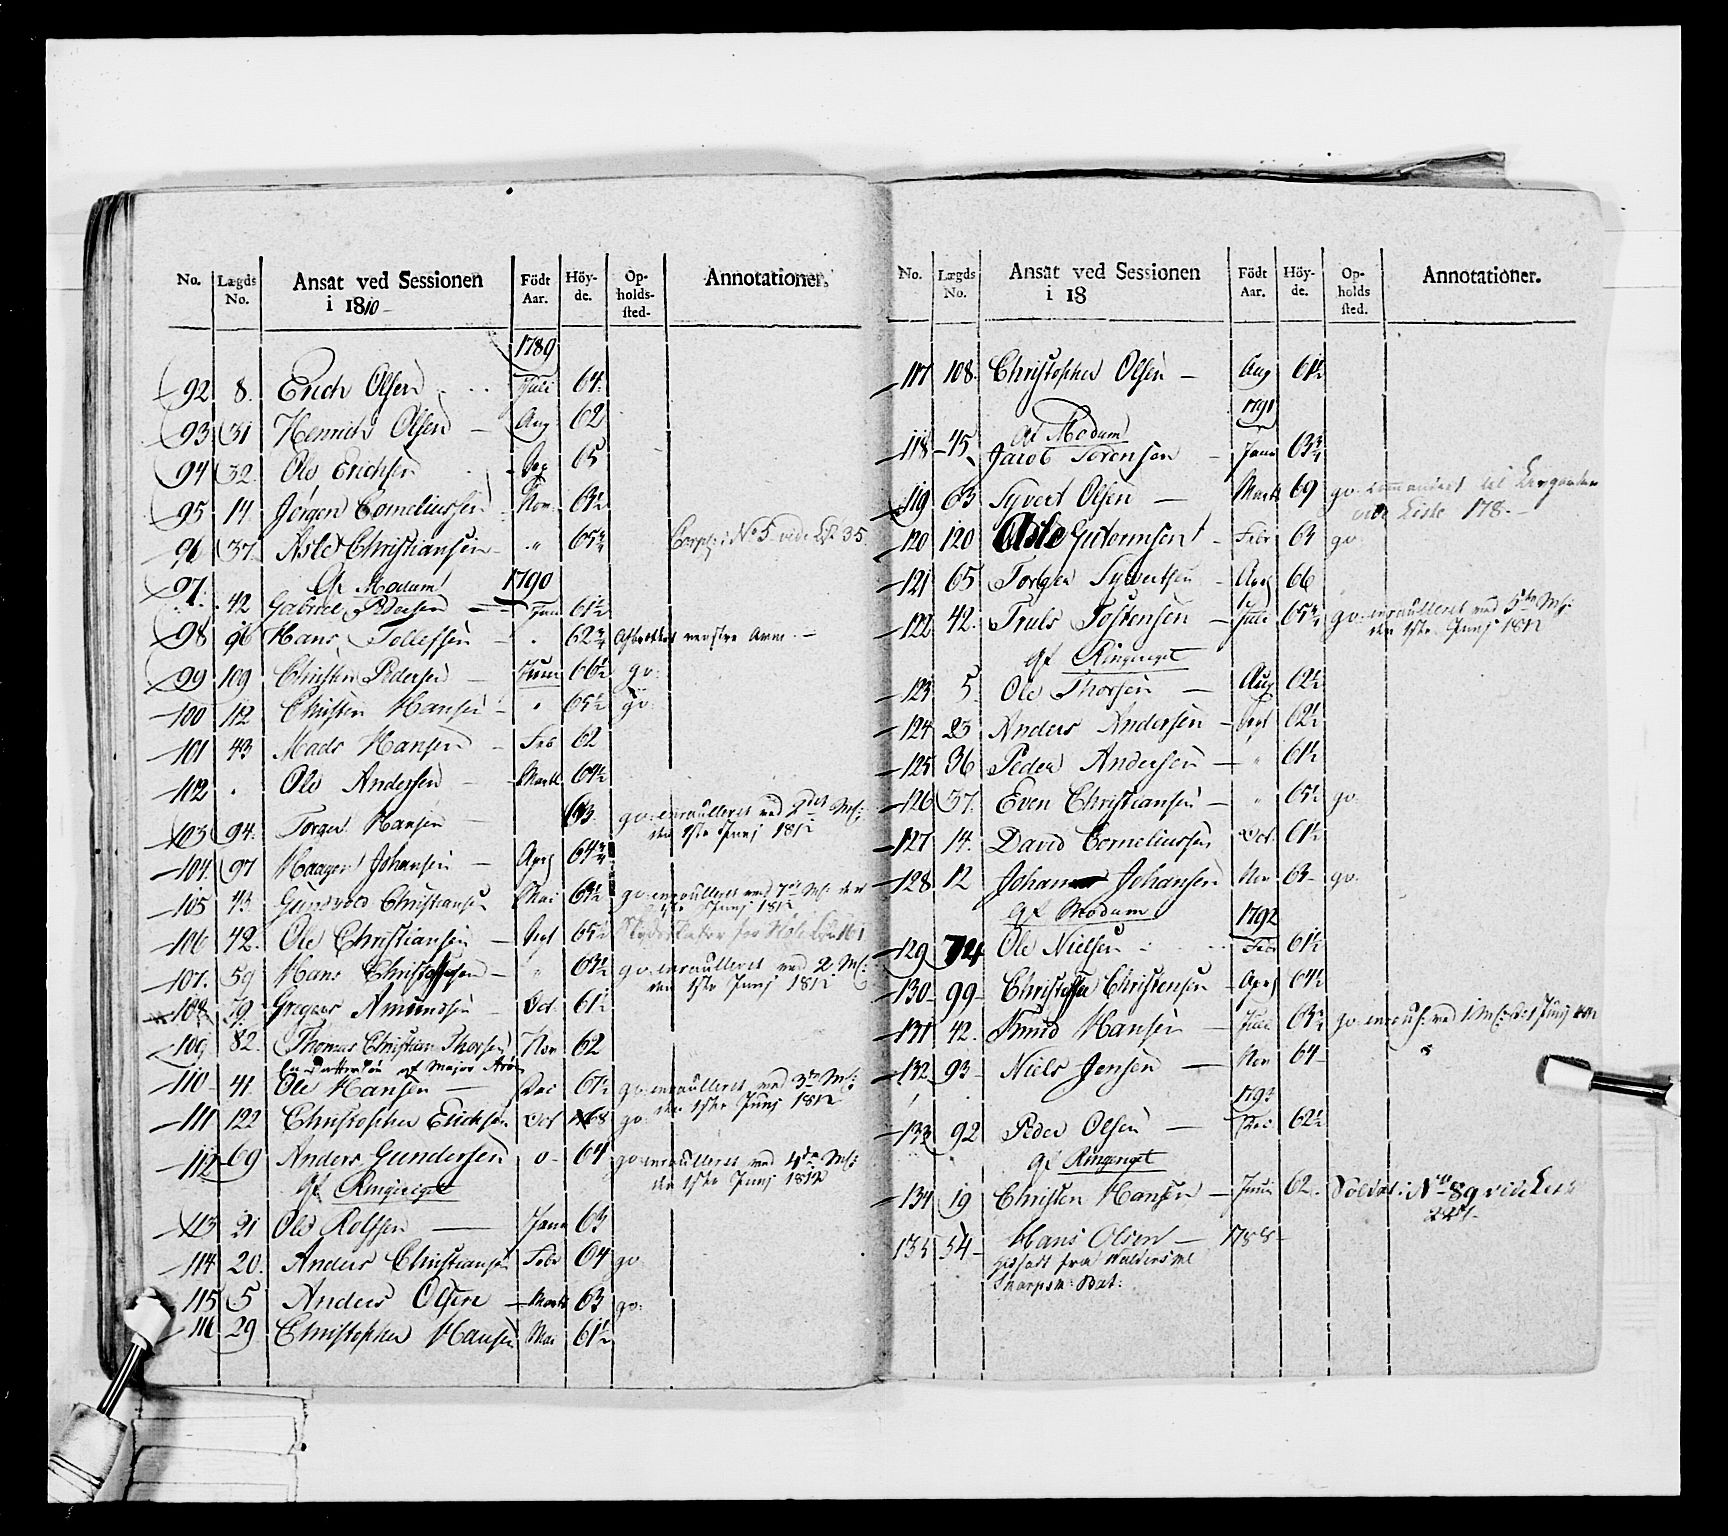 No. Lægds No. Ansat ved Sessionen i 1810 Födt Aar. Höy-de. Op-holds-sted- Annotationer.
1789
92 8. Erich Olsen Juli 64.
93 31 Henrich Olsen — Aug 62
94 32. Ole Erichsen Sep 65
95 14. Jörgen Corneliussen Nov. 63½
96 37. Christiansen „ 65¾ Corps: i No 5 vide 35.
Af Modum 1790
97. 42 Gabriel Pedersen — Jan 61½
98 96 Hans Tollefsen — „ 62¾ venstre Arm —
99 109 Christen Pedersen — 66½ go:
100 112 Christen Hansen „ 65½ go
101 43 Mads Hansen Feb 62
102 . Ole Andersen — Marti 64½
103 94. Torger Hansen — 63. go: enroulleret ved 2det Ms:
den 1ste Junj 1812
104. 97 Haagen Johansen — Apr 64¾
105 43. Gundvold Christiansen Mai 63½ go: enroulleret ved Ms: den
1ste Junj 1812
106 42. Ole Christiansen — Sept 65½
107. 59 Hans Christophersen — „ 63½ go: enroulleret ved 2 Ms:
den 1ste Junj 1812
108 79. Gregers Amundsen Oct. 61½
109 82. Thomas Christian Thorsen Nov 62
af Major
110 41. Ole Hansen — 67½ go: enroulleret ved 3die Ms:
den 1ste Junj 1812
111 122 Christopher Erichsen Oct 68 go:
112 69 Anders Gundersen 64 go: enroulleret ved 4de Ms:
den 1ste Junj 1812
Af Ringeriget
113 21 Ole Rolfsen — Janu 63
114 20. Anders Christiansen Febr 64 go
115 5 Anders Olsen — Marti 63 go:
116 29 Christopher Hansen Mai 61½
No. Lægds No. Ansat ved Sessionen i 18 Födt Aar. Höy-de. Op-holds sted. Annotationer.
117 108. Christopher Olsen — Aug 61½
1791
Af Modum
118 45 Jacob Sörensen Janu 63¾
119 63 Syvert Olsen — Marti 69 go: commandert til
vide Liste 178. —
120 120 Guttormsen Febr 63 go
121 65 Torger Syvertsen Apr 66
122 42. Truls Tostensen Juli 65¾ go: enroulleret ved 5te Ms:
den 1ste Junj 1812
Af Ringeriget
123 5. Ole Thorsen — Aug 62½
124 23 Anders Andersen — Sept 62½
125 36 Peder Andersen — „ 61½
126 37. Even Christiansen — „ 65½ go
127 14. David Corneliussen Oct. 61½
128 12 Johan Johansen Nov 63 — go.
Af Modum 1792
129 74 Ole Nielsen Feb 61½
130 99 Christensen — Apr 64½
131 42. Knud Hansen — Juli 63¾ go:
132 93 Niels Jensen — Nov 64
1793
133 92 Peder Olsen — 62½
Af Ringeriget
134 19 Christen Hansen — 62. Soldat i No 89 vide Liste
135 54 — Hans Olsen — 1788 —
fra Valdersske
Skarpsk: Bat: